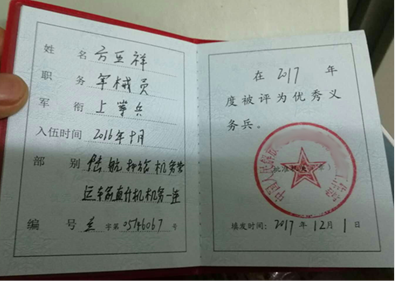 姓 名 方亚祥
职 务 军械员
军 衔 上等兵
入伍时间 2016年9月
部 别 陆航
运输直升机机务一连
编 号 字第05146067号
在 2017 年
度被评为优秀义
务兵。
中国人民解放
填发时间: 2017年12月1日